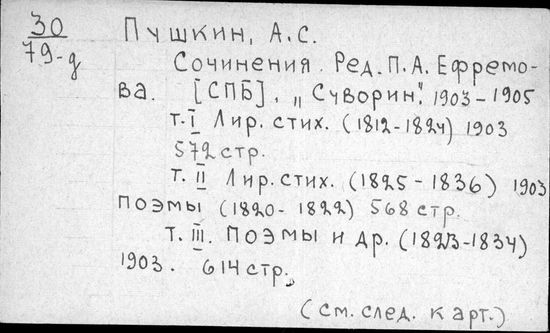 30
79-д
Пушкин, А.С.
Сочинения. Ред. П.А. Ефремо-
ва. [СПБ], "Суворин". 1903-1905
т. I Лир. стих. (1812-1824) 1903
572 стр.
т. II Лир. стих. (1825-1836) 1903
Поэмы (1820-1822) 568 стр.
т. III. Поэмы и др. (1823-1834)
1903. 614 стр.
(см. след. карт.)